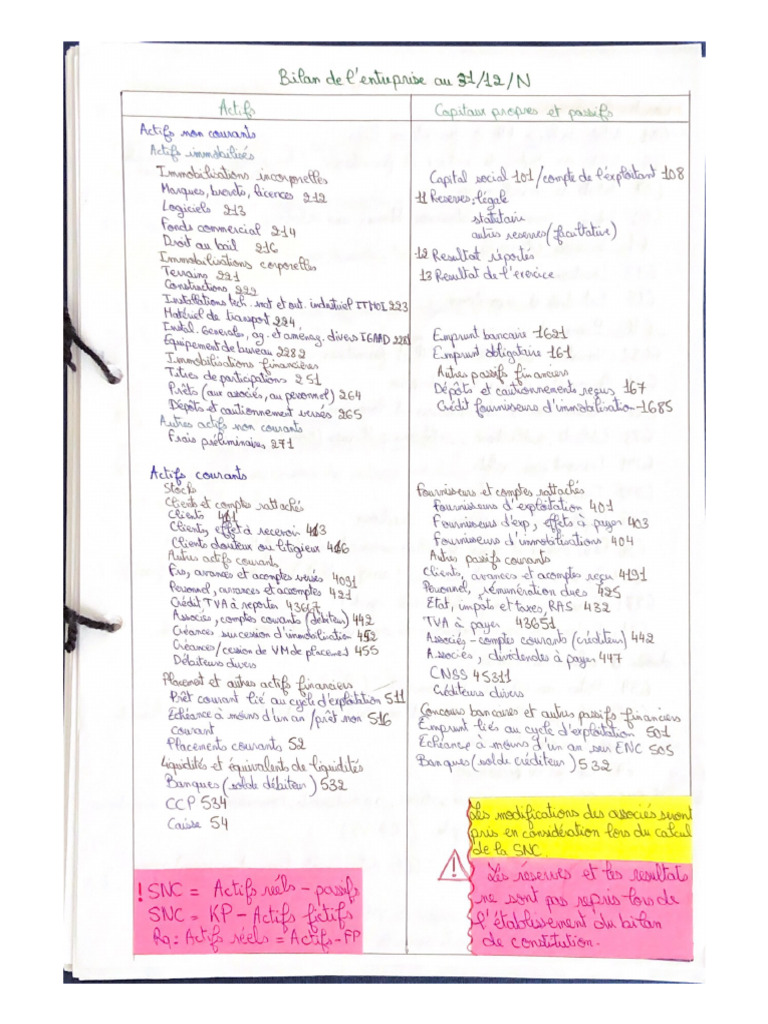 Bilan de l'entreprise au 31/12/N
Actifs
Actifs non courants
Actifs immobilisés
Immobilisations incorporelles
Marques, brevets, licences 212
Logiciels 213
Fonds commercial 214
Droit au bail 216
Immobilisations corporelles
Terrains 221
Constructions 222
Installations tech. mat et out. industriel ITMOI 223
Matériel de transport 224
Instal. Générales, ag. et aménag. divers IGAAD 2281
Equipement de bureau 2282
Immobilisations financières
Titres de participations 251
Prêts (aux associés, au personnel) 264
Dépôts et cautionnement versés 265
Autres actifs non courants
Frais préliminaires 271
Actifs courants
Stocks
Clients et comptes rattachés
Clients 411
Clients, effet à recevoir 413
Clients douteux ou litigieux 416
Autres actifs courants
Frs, avances et acomptes versés 4091
Personnel, avances et accomptes 421
Crédit TVA à reporter 43667
Associés, comptes courants (débiteur) 442
Créances sur cession d'immobilisation 452
Créances/cession de VM de placement 455
Débiteurs divers
Placement et autres actifs financiers
Prêt courant lié au cycle d'exploitation 511
Echéance à moins d'un an /prêt non 516
courant
Placements courants 52
Liquidités et équivalents de liquidités
Banques (solde débiteur) 532
CCP 534
Caisse 54
! SNC = Actifs réels - passifs
SNC = KP - Actifs fictifs
Rq: Actifs réels = Actifs - FP
Capitaux propres et passifs
Capital social 101 /compte de l'exploitant 108
11 Reserves: légale
statutaire
autres reserves (facultative)
12 Resultat reportés
13 Resultat de l'exercice
Emprunt bancaire 1621
Emprunt obligataire 161
Autres passif financiers
Dépôts et cautionnements reçus 167
Crédit fournisseurs d'immobilisation 1685
Fournisseurs et comptes rattachés
Fournisseurs d'exploitation 401
Fournisseurs d'exp, effets à payer 403
Fournisseurs d'immobilisations 404
Autres passif courants
Clients, avances et acomptes reçu 4191
Personnel, rémunération dues 425
Etat, impots et taxes, RAS 432
TVA à payer 43651
Associés - comptes courants (créditeur) 442
Associés, dividendes à payer 447
CNSS 45311
Créditeurs divers
Concours bancaires et autres passif financiers
Emprunt liés au cycle d'exploitation 501
Echéance à moins d'un an sur ENC 505
Banques (solde créditeur) 532
Les modifications des associés seront
pris en considération lors du calcul
de la SNC.
! Les réserves et les resultats
ne sont pas repris lors de
l'établissement du bilan
de constitution.